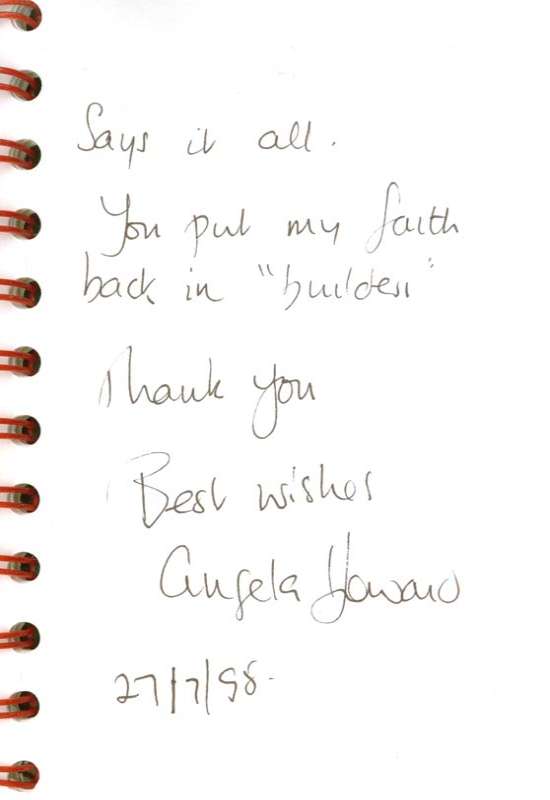 Says it all.
You put my faith
back in "builders"
Thank you
Best wishes
Angela Howard
27/7/98.